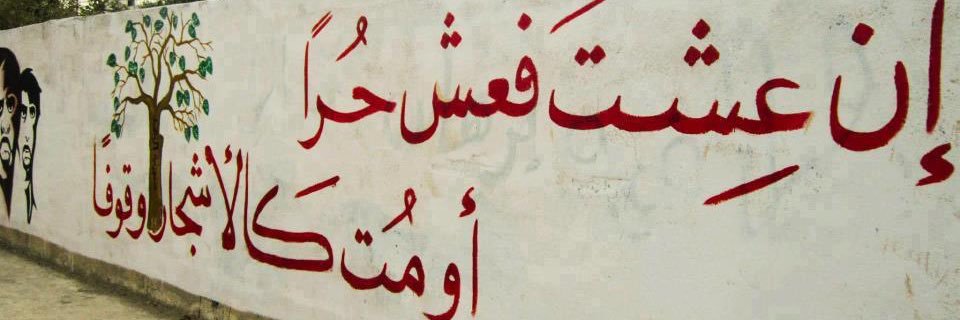 إن عِشتَ فعش حُراً
أو مُتَ كالأشجار وقوفًا